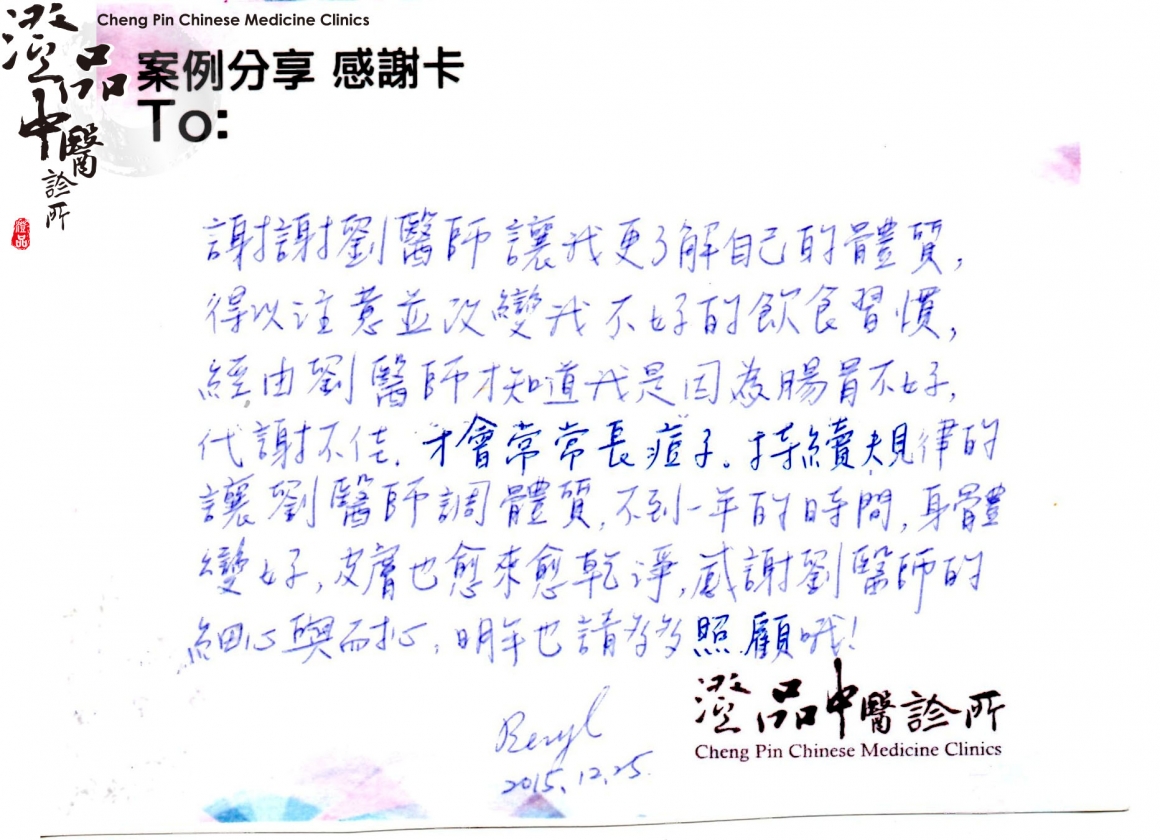 Cheng Pin Chinese Medicine Clinics
澄品中醫診所
澄品
案例分享 感謝卡
To:
謝謝劉醫師讓我更了解自己的體質,
得以注意並改變我不好的飲食習慣,
經由劉醫師才知道我是因為腸胃不好,
代謝不佳.才會常常長痘子。持續規律的
讓劉醫師調體質,不到一年的時間,身體
變好,皮膚也愈來愈乾淨,感謝劉醫師的
細心與耐心,明年也請多多照顧哦!
Beryl
2015.12.25.
澄品中醫診所
Cheng Pin Chinese Medicine Clinics